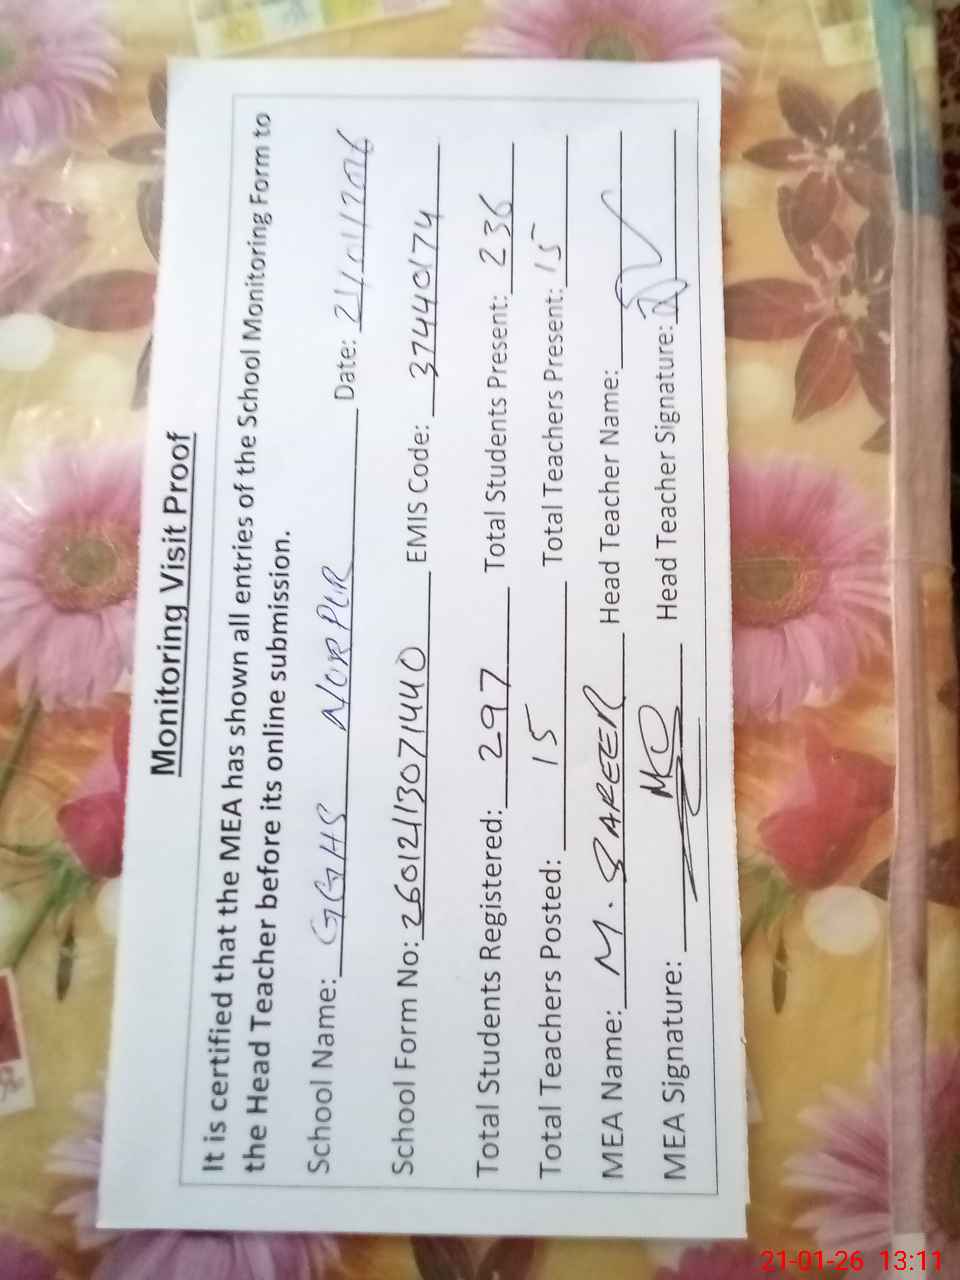 Monitoring Visit Proof
It is certified that the MEA has shown all entries of the School Monitoring Form to
the Head Teacher before its online submission.
School Name: GGHS NORPUR Date: 21/01/2026
School Form No: 26012113071440 EMIS Code: 37440174
Total Students Registered: 297 Total Students Present: 236
Total Teachers Posted: 15 Total Teachers Present: 15
MEA Name: M. SAREER Head Teacher Name:
MEA Signature: Head Teacher Signature:
21-01-26 13:11